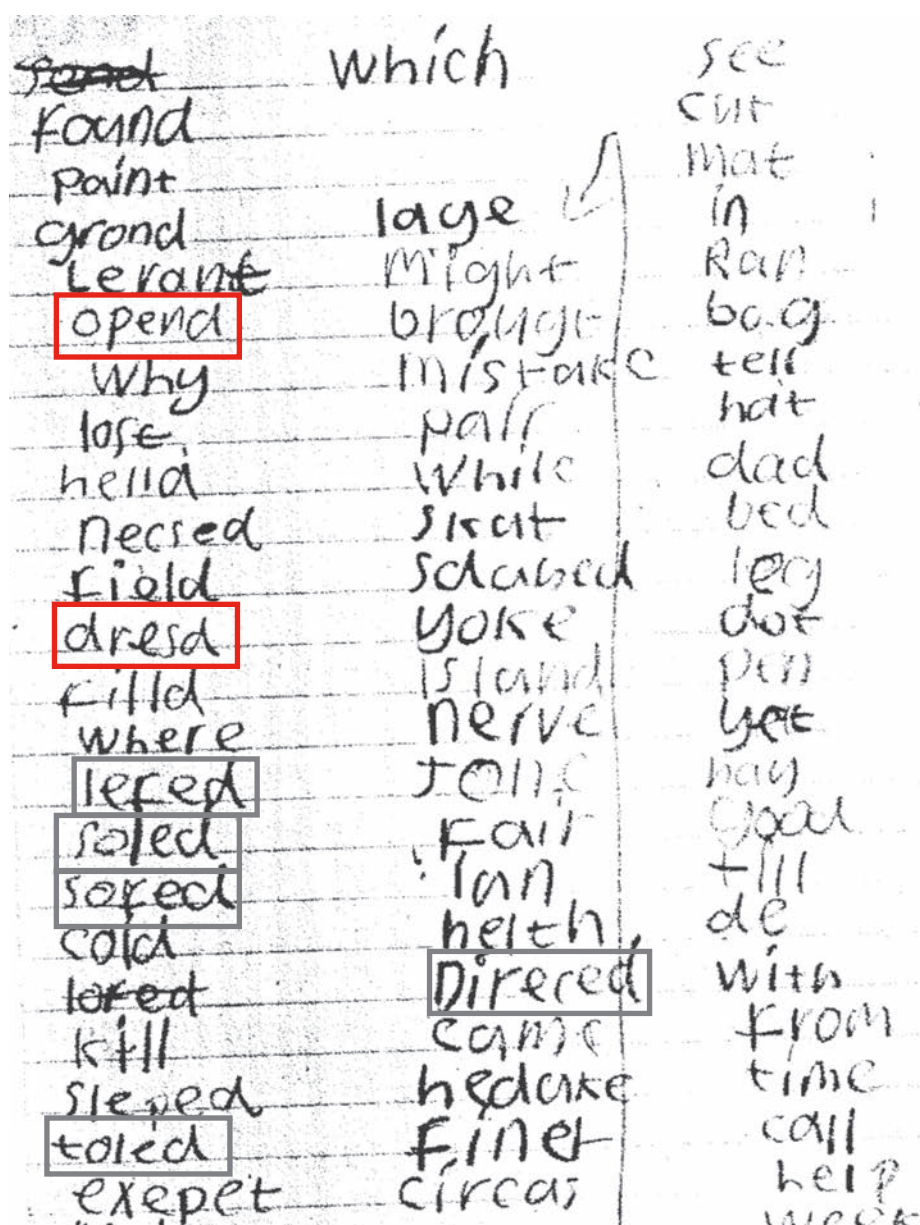 found
paint
grond
Lerant
opend
why
lost
helld
necsed
field
dresd
filld
where
lefed
soled
sofed
cold
kill
sleped
toled
exepet
which
laye
Might
mistake
pair
while
skat
yoke
island
nerve
Fair
lan
helth
Direred
came
hedake
circas
see
cut
mat
in
Ran
bag
tell
hat
dad
bed
leg
dot
pen
yet
hay
Good
till
de
with
from
time
call
help